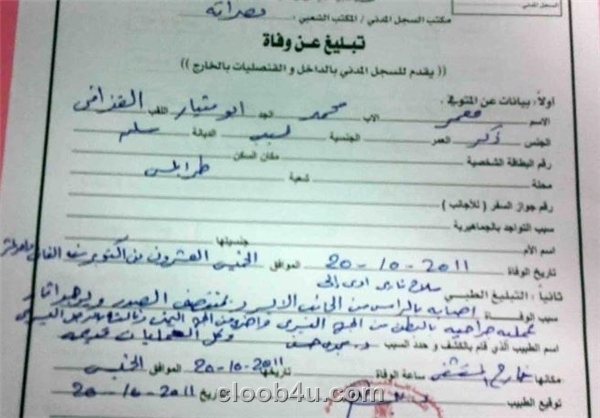 السجل المدني
مكتب السجل المدني / المكتب الشعبي : مصراته
تبليغ عن وفاة
(( يقدم للسجل المدني بالداخل و القنصليات بالخارج ))
أولاً : بيانات عن المتوفي .
الاسم معمر الاب محمد الجد ابومنيار اللقب القذافي
الجنس ذكر العمر الجنسية ليبي الديانة مسلم
رقم البطاقة الشخصية مكان السكن
محلة شعبية طرابلس
رقم جواز السفر ( للأجانب )
سبب التواجد بالجماهيرية
اسم الأم جنسيتها
تاريخ الوفاة 20-10-2011 الموافق الخميس العشرون من اكتوبر
سلاح ناري ادى الى
ثانياً : التبليغ الطبي
سبب الوفاة اصابه بالرأس من الجانب الايسر و بمنتصف الصدر
عمليه جراحيه بالبطن من الجهة اليسرى واخرى من الجهة اليمنى
اسم الطبيب الذي قام بالكشف و حدد السبب وكل العمليات قديمه
مكانها خارج المستشفى ساعة الوفاة تاريخها 20-10-2011 الموافق الخميس
توقيع الطبيب التاريخ 20-10-2011
eloob4u.com